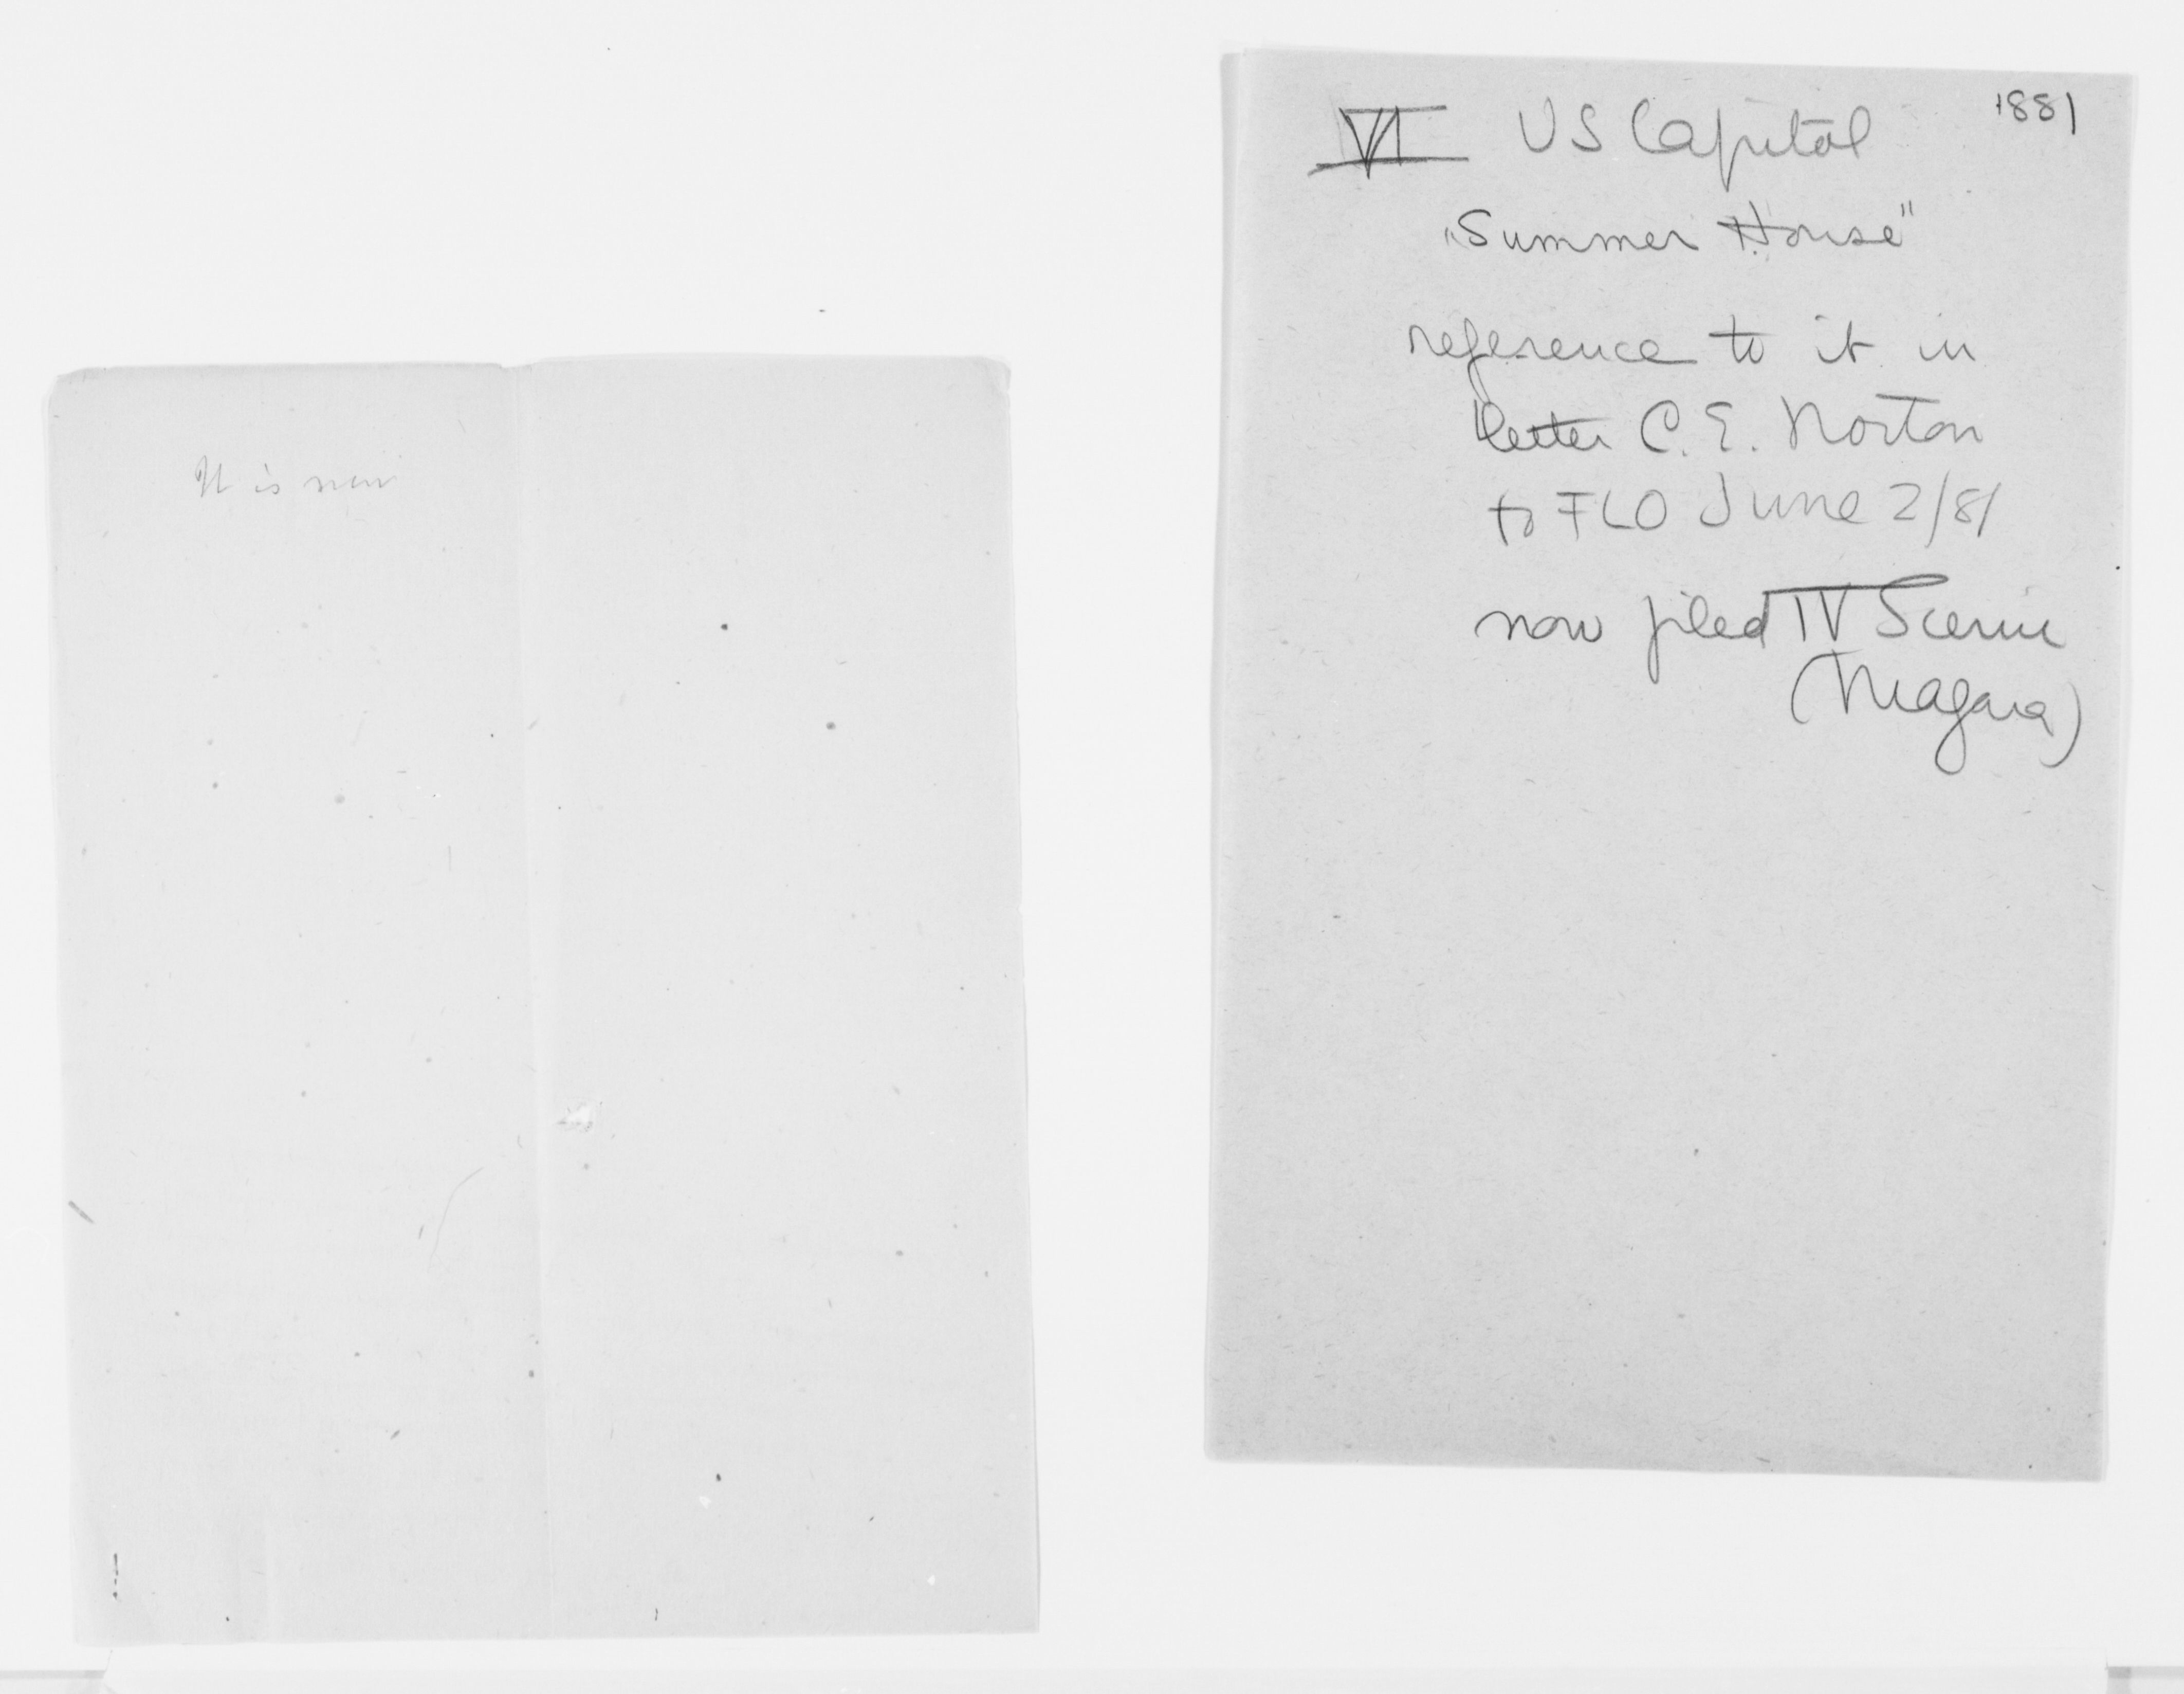 It is
VI US Capitol 1881
"Summer House"
reference to it in
letter C. E. Norton
to FLO June 2/81
now filed IV Scenic
(Niagara)